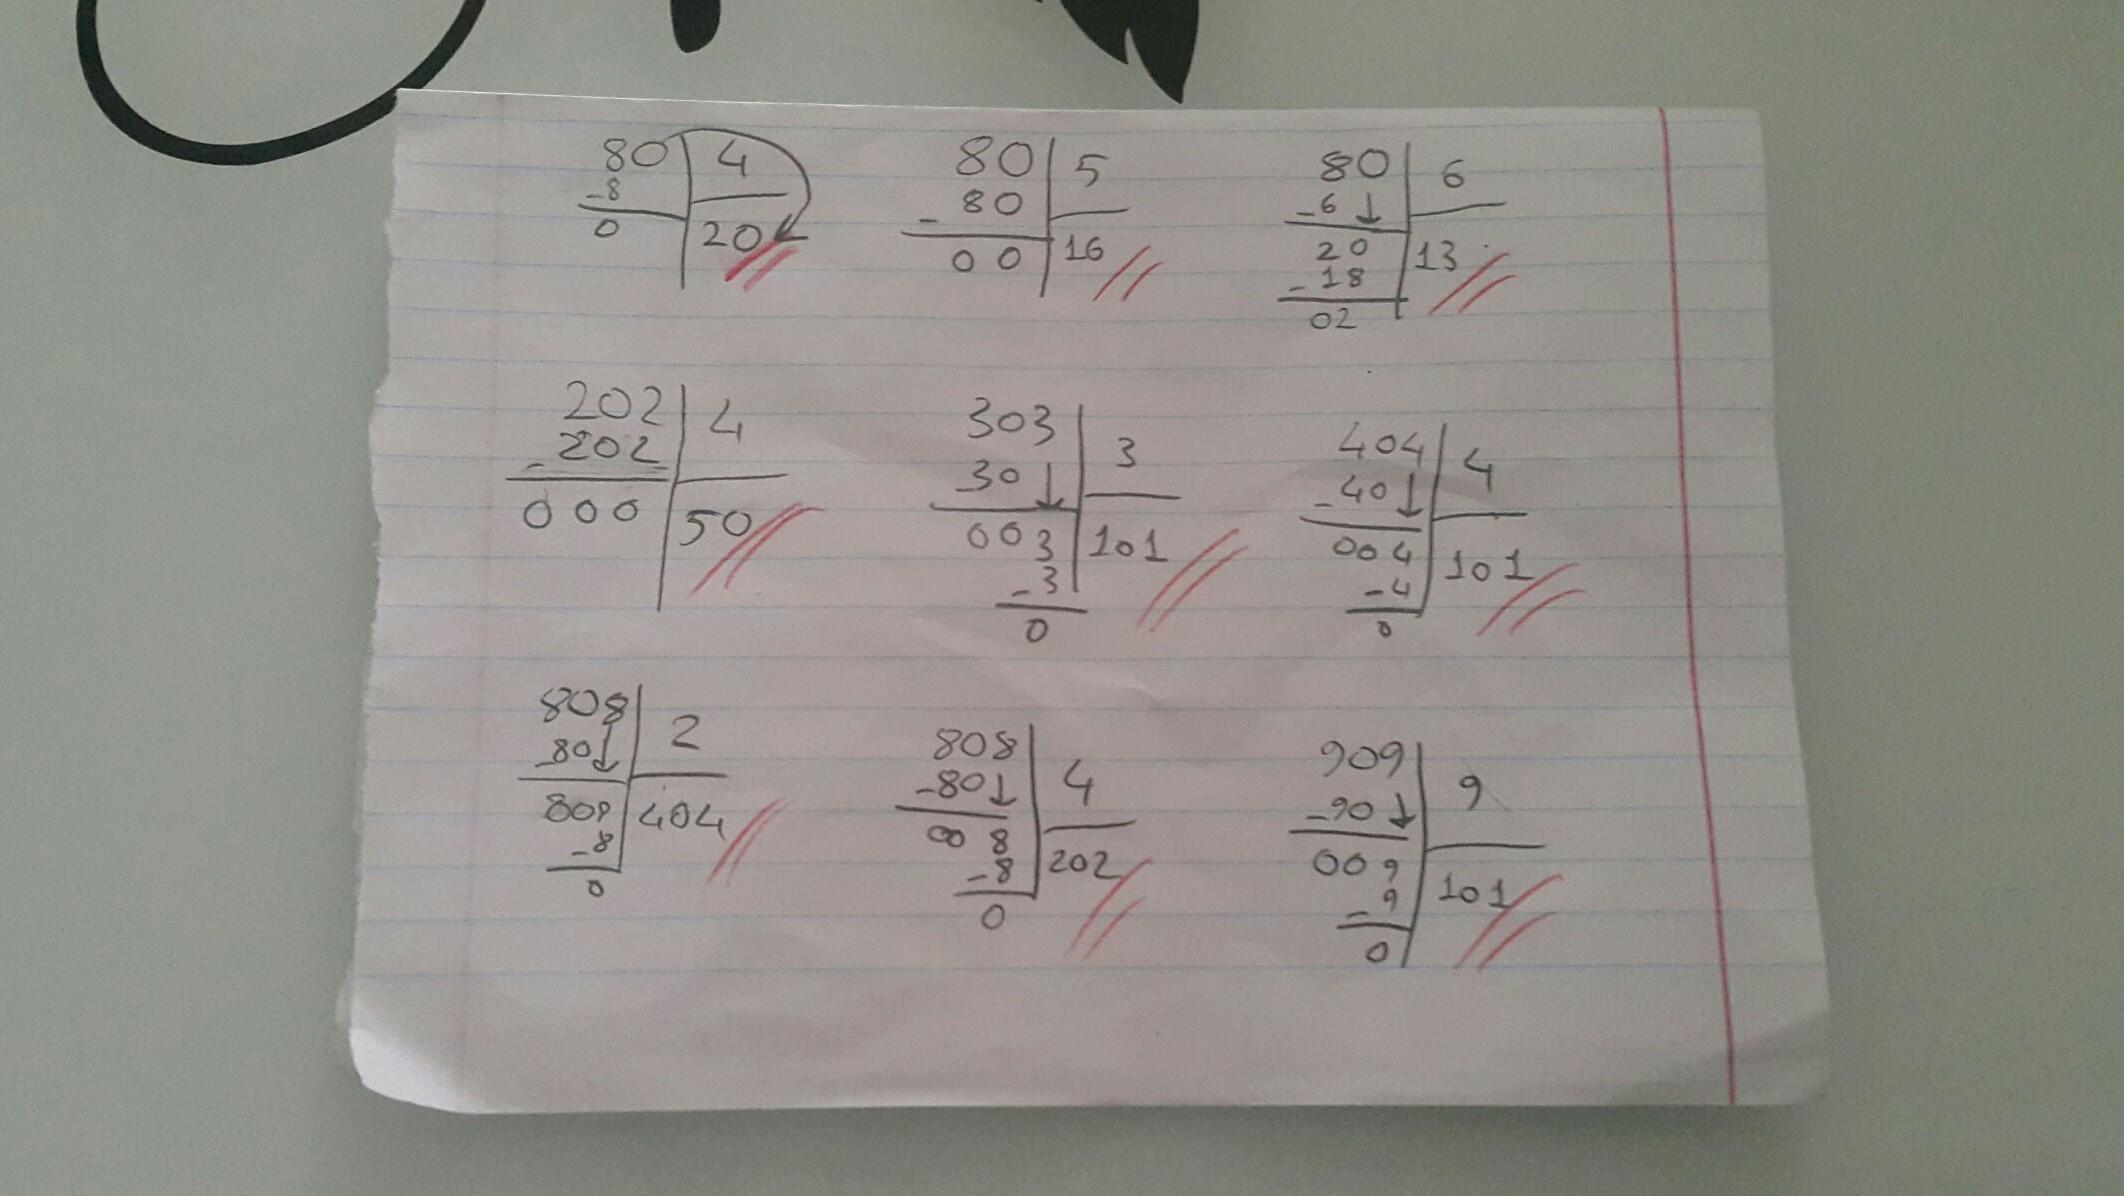 80 4
-8
0 20
80 5
- 80
00 16
80 6
-6 ↓
20 13
-18
02
202 4
-202
000 50
303 3
30 ↓
003 101
-3
0
404 4
-40 ↓
004 101
-4
0
808 2
-80 ↓
808 404
-8
0
808 4
-80 ↓
00 8 202
-8
0
909 9
-90 ↓
009 101
-9
0